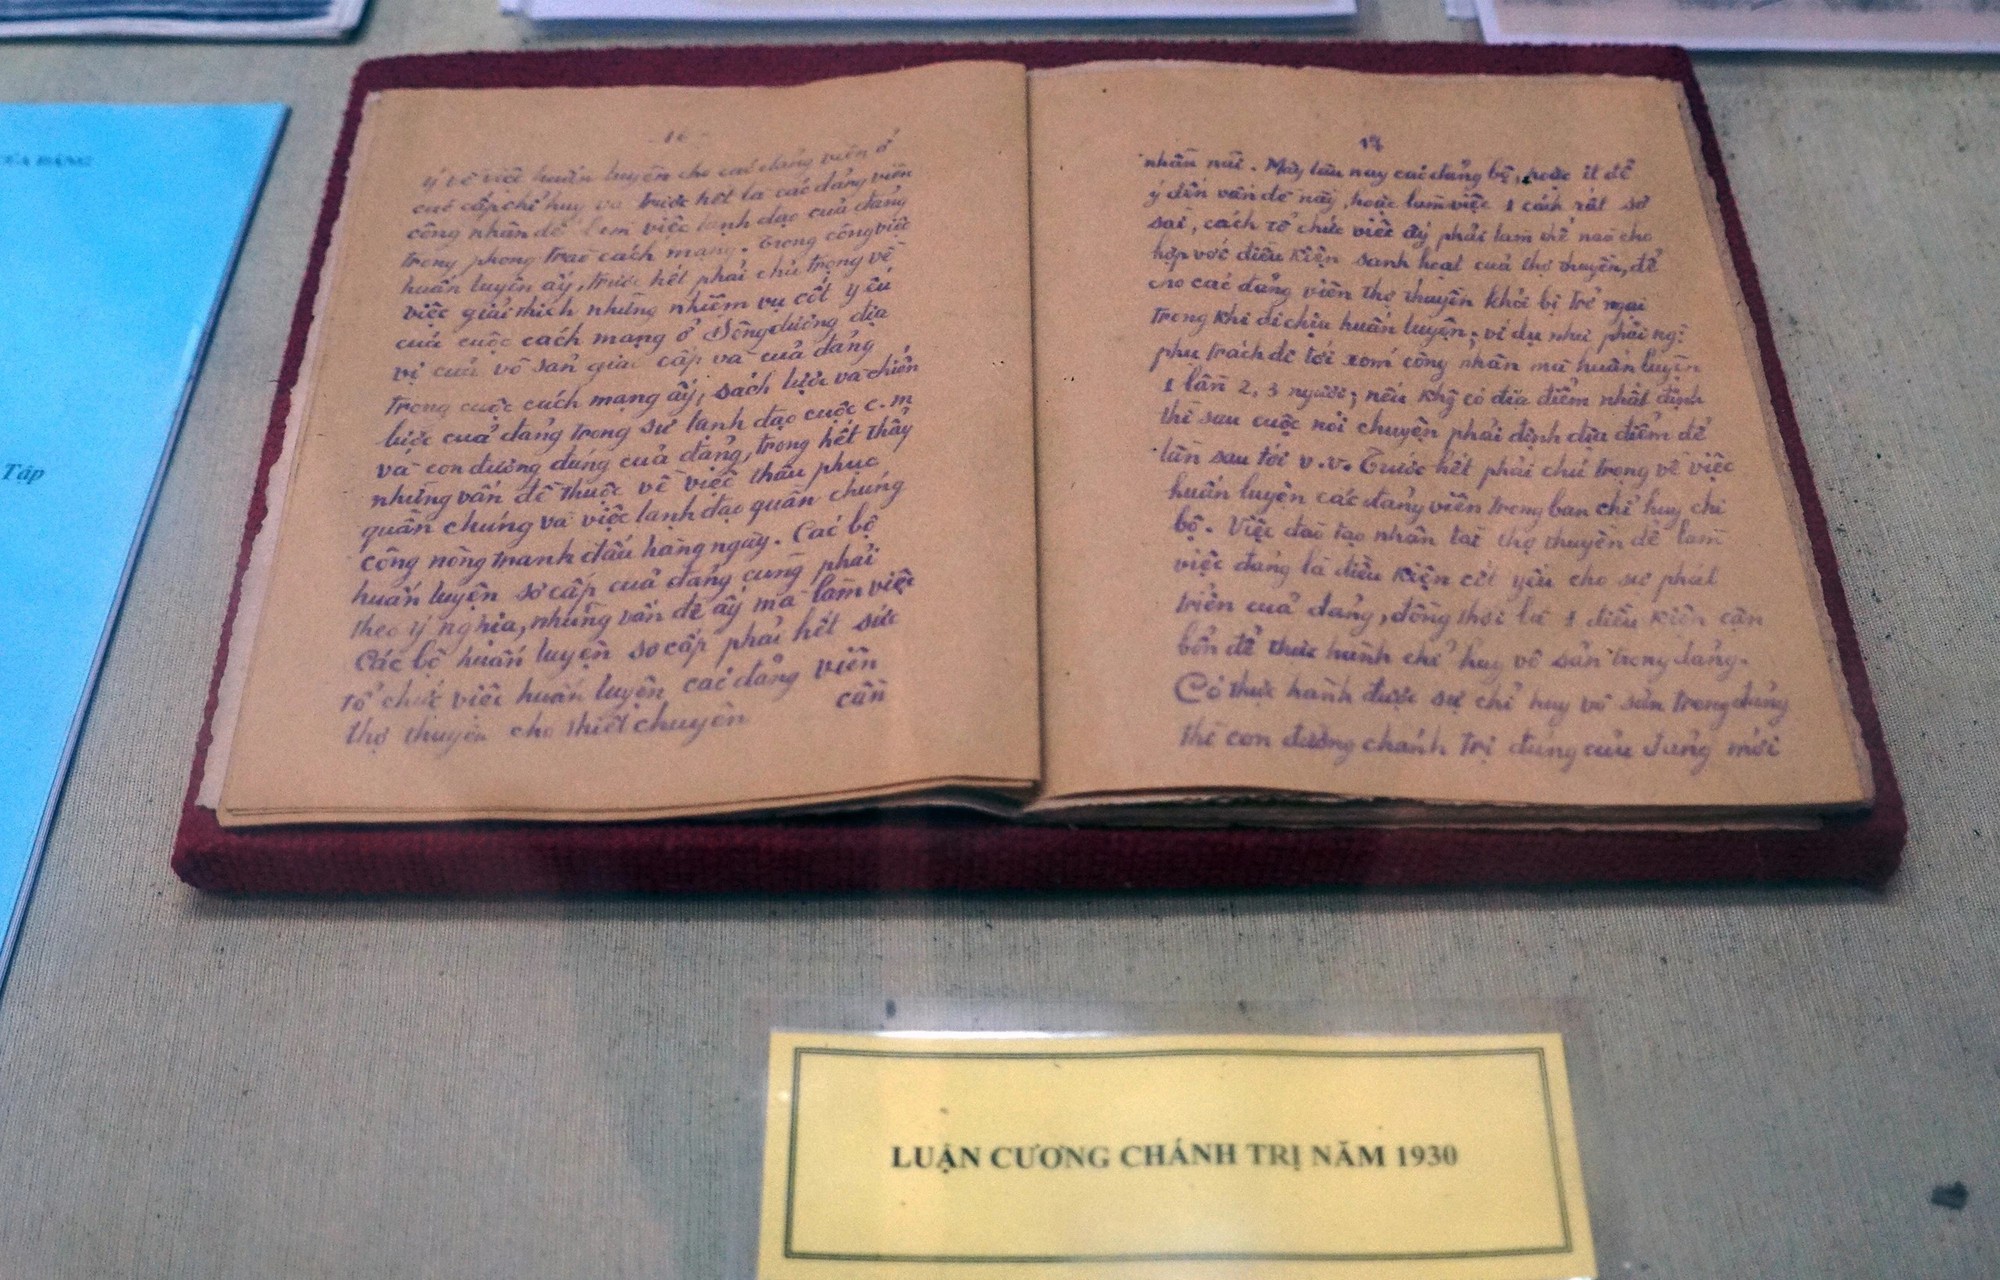 CỦA ĐẢNG
Tập
16
ý về việc huấn luyện cho các đảng viên ở
các cấp chỉ huy và trước hết là các đảng viên
công nhân để làm việc lãnh đạo của đảng
trong phong trào cách mạng. Trong công việc
huấn luyện ấy, trước hết phải chú trọng về
việc giải thích những nhiệm vụ cốt yếu
của cuộc cách mạng ở Đông dương địa
vị của vô sản giai cấp và của đảng
trong cuộc cách mạng ấy, sách lược và chiến
lược của đảng trong sự lãnh đạo cuộc c.m
và con đường đúng của đảng, trong hết thảy
những vấn đề thuộc về việc thâu phục
quần chúng và việc lãnh đạo quần chúng
công nông tranh đấu hàng ngày. Các bộ
huấn luyện sơ cấp của đảng cũng phải
theo ý nghĩa, những vấn đề ấy mà làm việc
Các bộ huấn luyện sơ cấp phải hết sức
tổ chức việc huấn luyện các đảng viên
thợ thuyền cho thiết chuyên cần
17
nhẫn nại. Mấy lâu nay các đảng bộ, hoặc ít để
ý đến vấn đề này, hoặc làm việc 1 cách rất sơ
sài, cách tổ chức việc ấy phải làm thế nào cho
hợp với điều kiện sanh hoạt của thợ thuyền, để
cho các đảng viên thợ thuyền khỏi bị trở ngại
trong khi đi chịu huấn luyện; ví dụ như phải ng:
phụ trách đi tới xóm công nhân mà huấn luyện
1 lần 2, 3 người; nếu khg có địa điểm nhất định
thì sau cuộc nói chuyện phải định địa điểm để
lần sau tới v.v. Trước hết phải chú trọng về việc
huấn luyện các đảng viên trong ban chỉ huy chi
bộ. Việc đào tạo nhân tài thợ thuyền để làm
việc đảng là điều kiện cốt yếu cho sự phát
triển của đảng, đồng thời là 1 điều kiện căn
bổn để thực hành chỉ huy vô sản trong đảng.
Có thực hành được sự chỉ huy vô sản trong đảng
thì con đường chánh trị đúng của đảng mới
LUẬN CƯƠNG CHÁNH TRỊ NĂM 1930